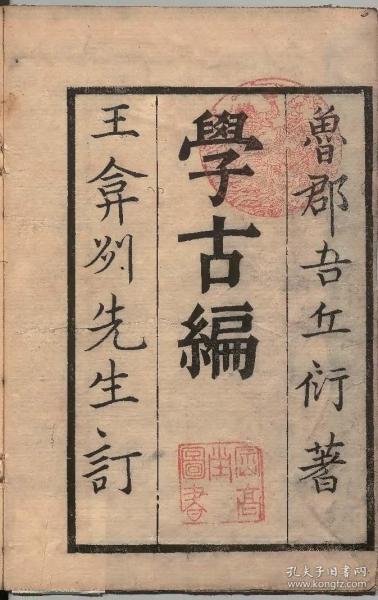 魯郡吾丘衍著
學古編
王弇州先生訂
圖書
孔夫子旧书网